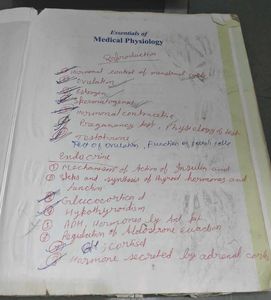 Essentials of
Medical Physiology
Reproduction
① Hormonal control of menstrual cycle
② Ovulation
③ Estrogen
④ Spermatogenesis
⑤ Hormonal contraceptive
⑥ Pregnancy test, Physiology &
⑦ Testosterone
Test of ovulation, Function of
Endocrine
① Mechanism of Action of Insulin and
② Steps and synthesis of thyroid hormones and
function
③ Glucocorticoid
④ Hypothyroidism
⑤ ADH, Hormones by Ant. pit
⑥ Regulation of Aldosterone
GH, Cortisol
⑦ Hormone secreted by adrenal cortex